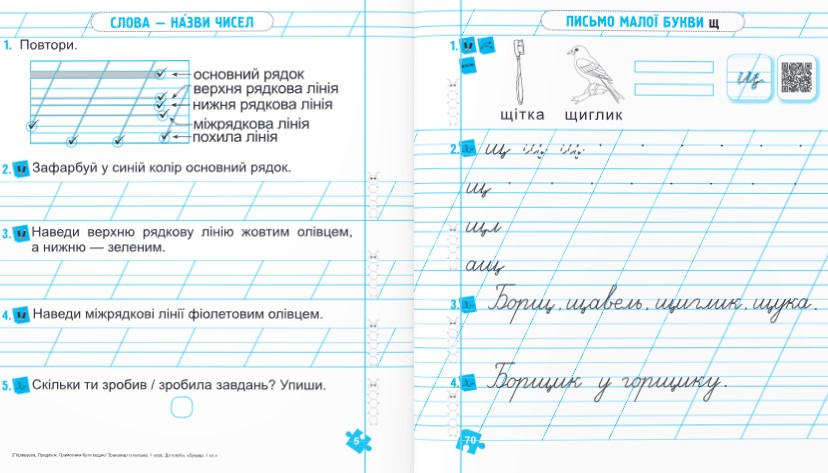 СЛОВА — НА́ЗВИ ЧИСЕЛ
1. Повтори.
основний рядок
верхня рядкова лінія
нижня рядкова лінія
міжрядкова лінія
похила лінія
2. Зафарбуй у синій колір основний рядок.
3. Наведи верхню рядкову лінію жовтим олівцем,
а нижню — зеленим.
4. Наведи міжрядкові лінії фіолетовим олівцем.
5. Скільки ти зробив / зробила завдань? Упиши.
5
ПИСЬМО МАЛОЇ БУКВИ щ
1.
щ
щітка щиглик
2. щ щ щ
щ
щл
ащ
3. Борщ, щавель, щиглик, щука.
4. Борщик у горщику.
70